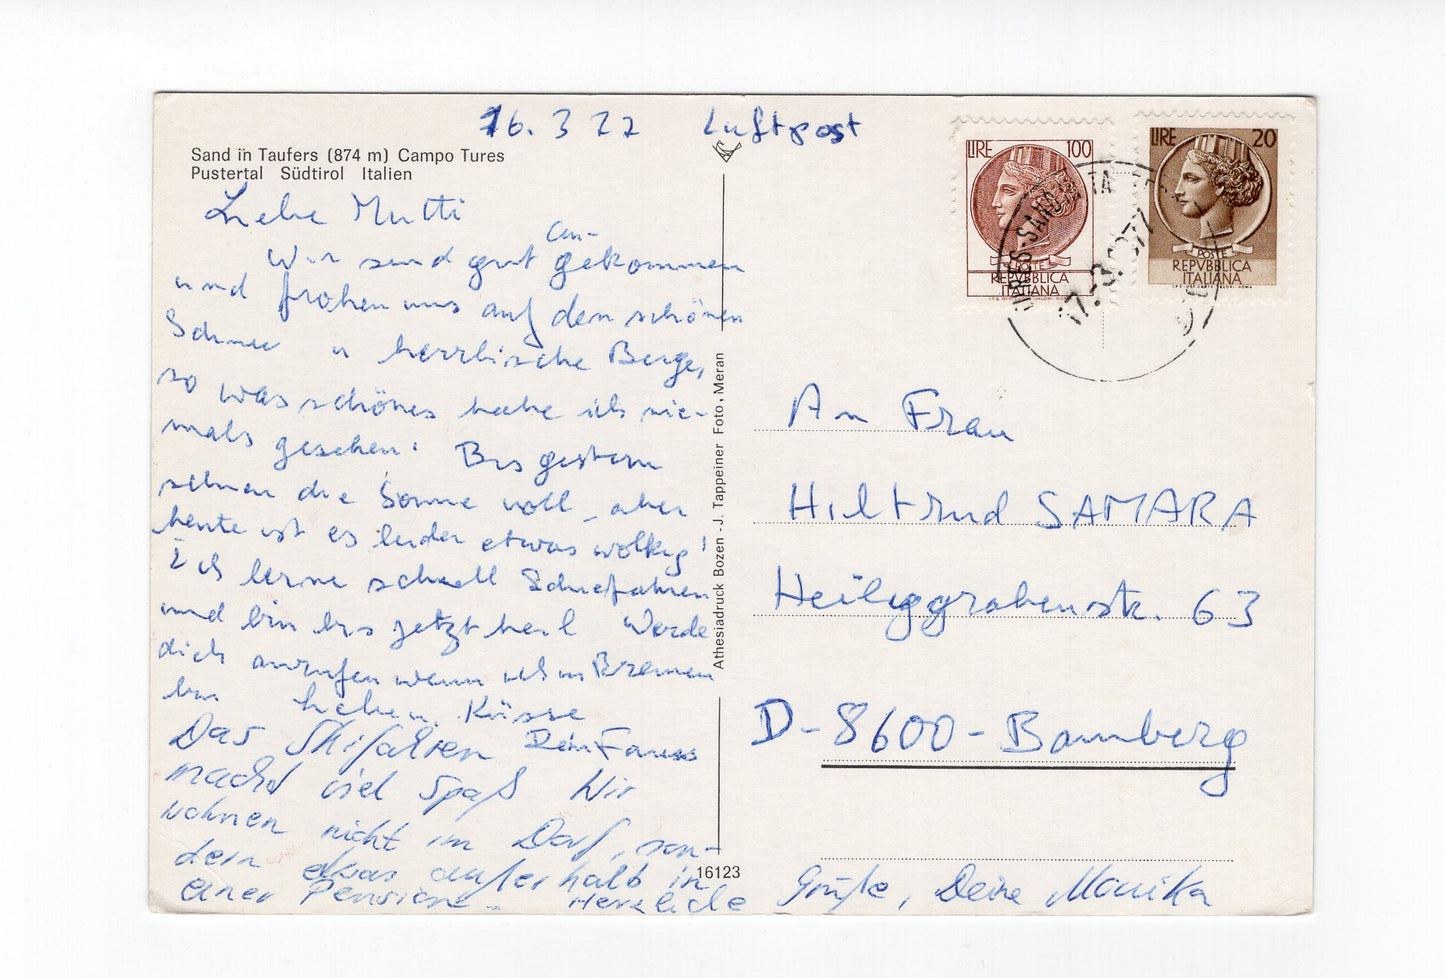 16.3 77 Luftpost
Sand in Taufers (874 m) Campo Tures
Pustertal Südtirol Italien
Liebe Mutti
Wir sind gut an-
gekommen
und frohen uns auf den schönen
Schnee u herrlische Berge,
so was schönes habe ich nie-
mals gesehen! Bis gestern
schien die Sonne voll, aber
heute ist es leider etwas wolkig!
Ich lerne schnell Schiefahren
und bin bis jetzt heil Werde
dich anrufen wenn ich in Bremen
bin Küsse
Dein
Das Skifahren
macht viel Spaß Wir
wohnen nicht im Dorf, son-
dern etwas außerhalb in
einer Pension. Herzliche Grüße, Deine Monika
Athesiadruck Bozen - J. Tappeiner Foto, Meran
16123
LIRE 100
POSTE
REPVBBLICA
ITALIANA
LIRE 20
POSTE
REPVBBLICA
ITALIANA
17.-3.1977
An Frau
Hiltrud SAMARA
Heiliggrabenstr. 63
D-8600-Bamberg